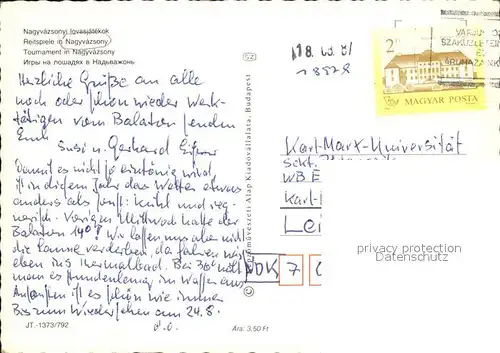 Nagyvázsonyi lovasjátékok
Reitspiele in Nagyvázsony
Tournament in Nagyvázsony
Игры на лошадях в Надьважонь
Herzliche Grüße an alle
noch oder schon wieder Werk-
tätigen vom Balaton senden
Euch
Susi u. Gerhard
Damit es nicht so eintönig wird,
ist in diesem Jahr das Wetter etwas
anders als sonst: kühl und reg-
nerisch. Vorigen Mittwoch hatte der
Balaton 14°! Wir lassen uns aber nicht
die Laune verderben, da fahren wir
eben ins Thermalbad. Bei 36° hält
man es stundenlang im Wasser aus.
Ansonsten ist es schön wie immer
Bis zum Wiedersehen am 24.8.
JT.-1373/792
Ára: 3,50 Ft
Képzőművészeti Alap Kiadóvállalata, Budapest
SZ
2 Ft
MAGYAR POSTA
Karl-Marx-Universität
Sekt.
WB E
Karl-
Lei
privacy protection
Datenschutz
DDK 7